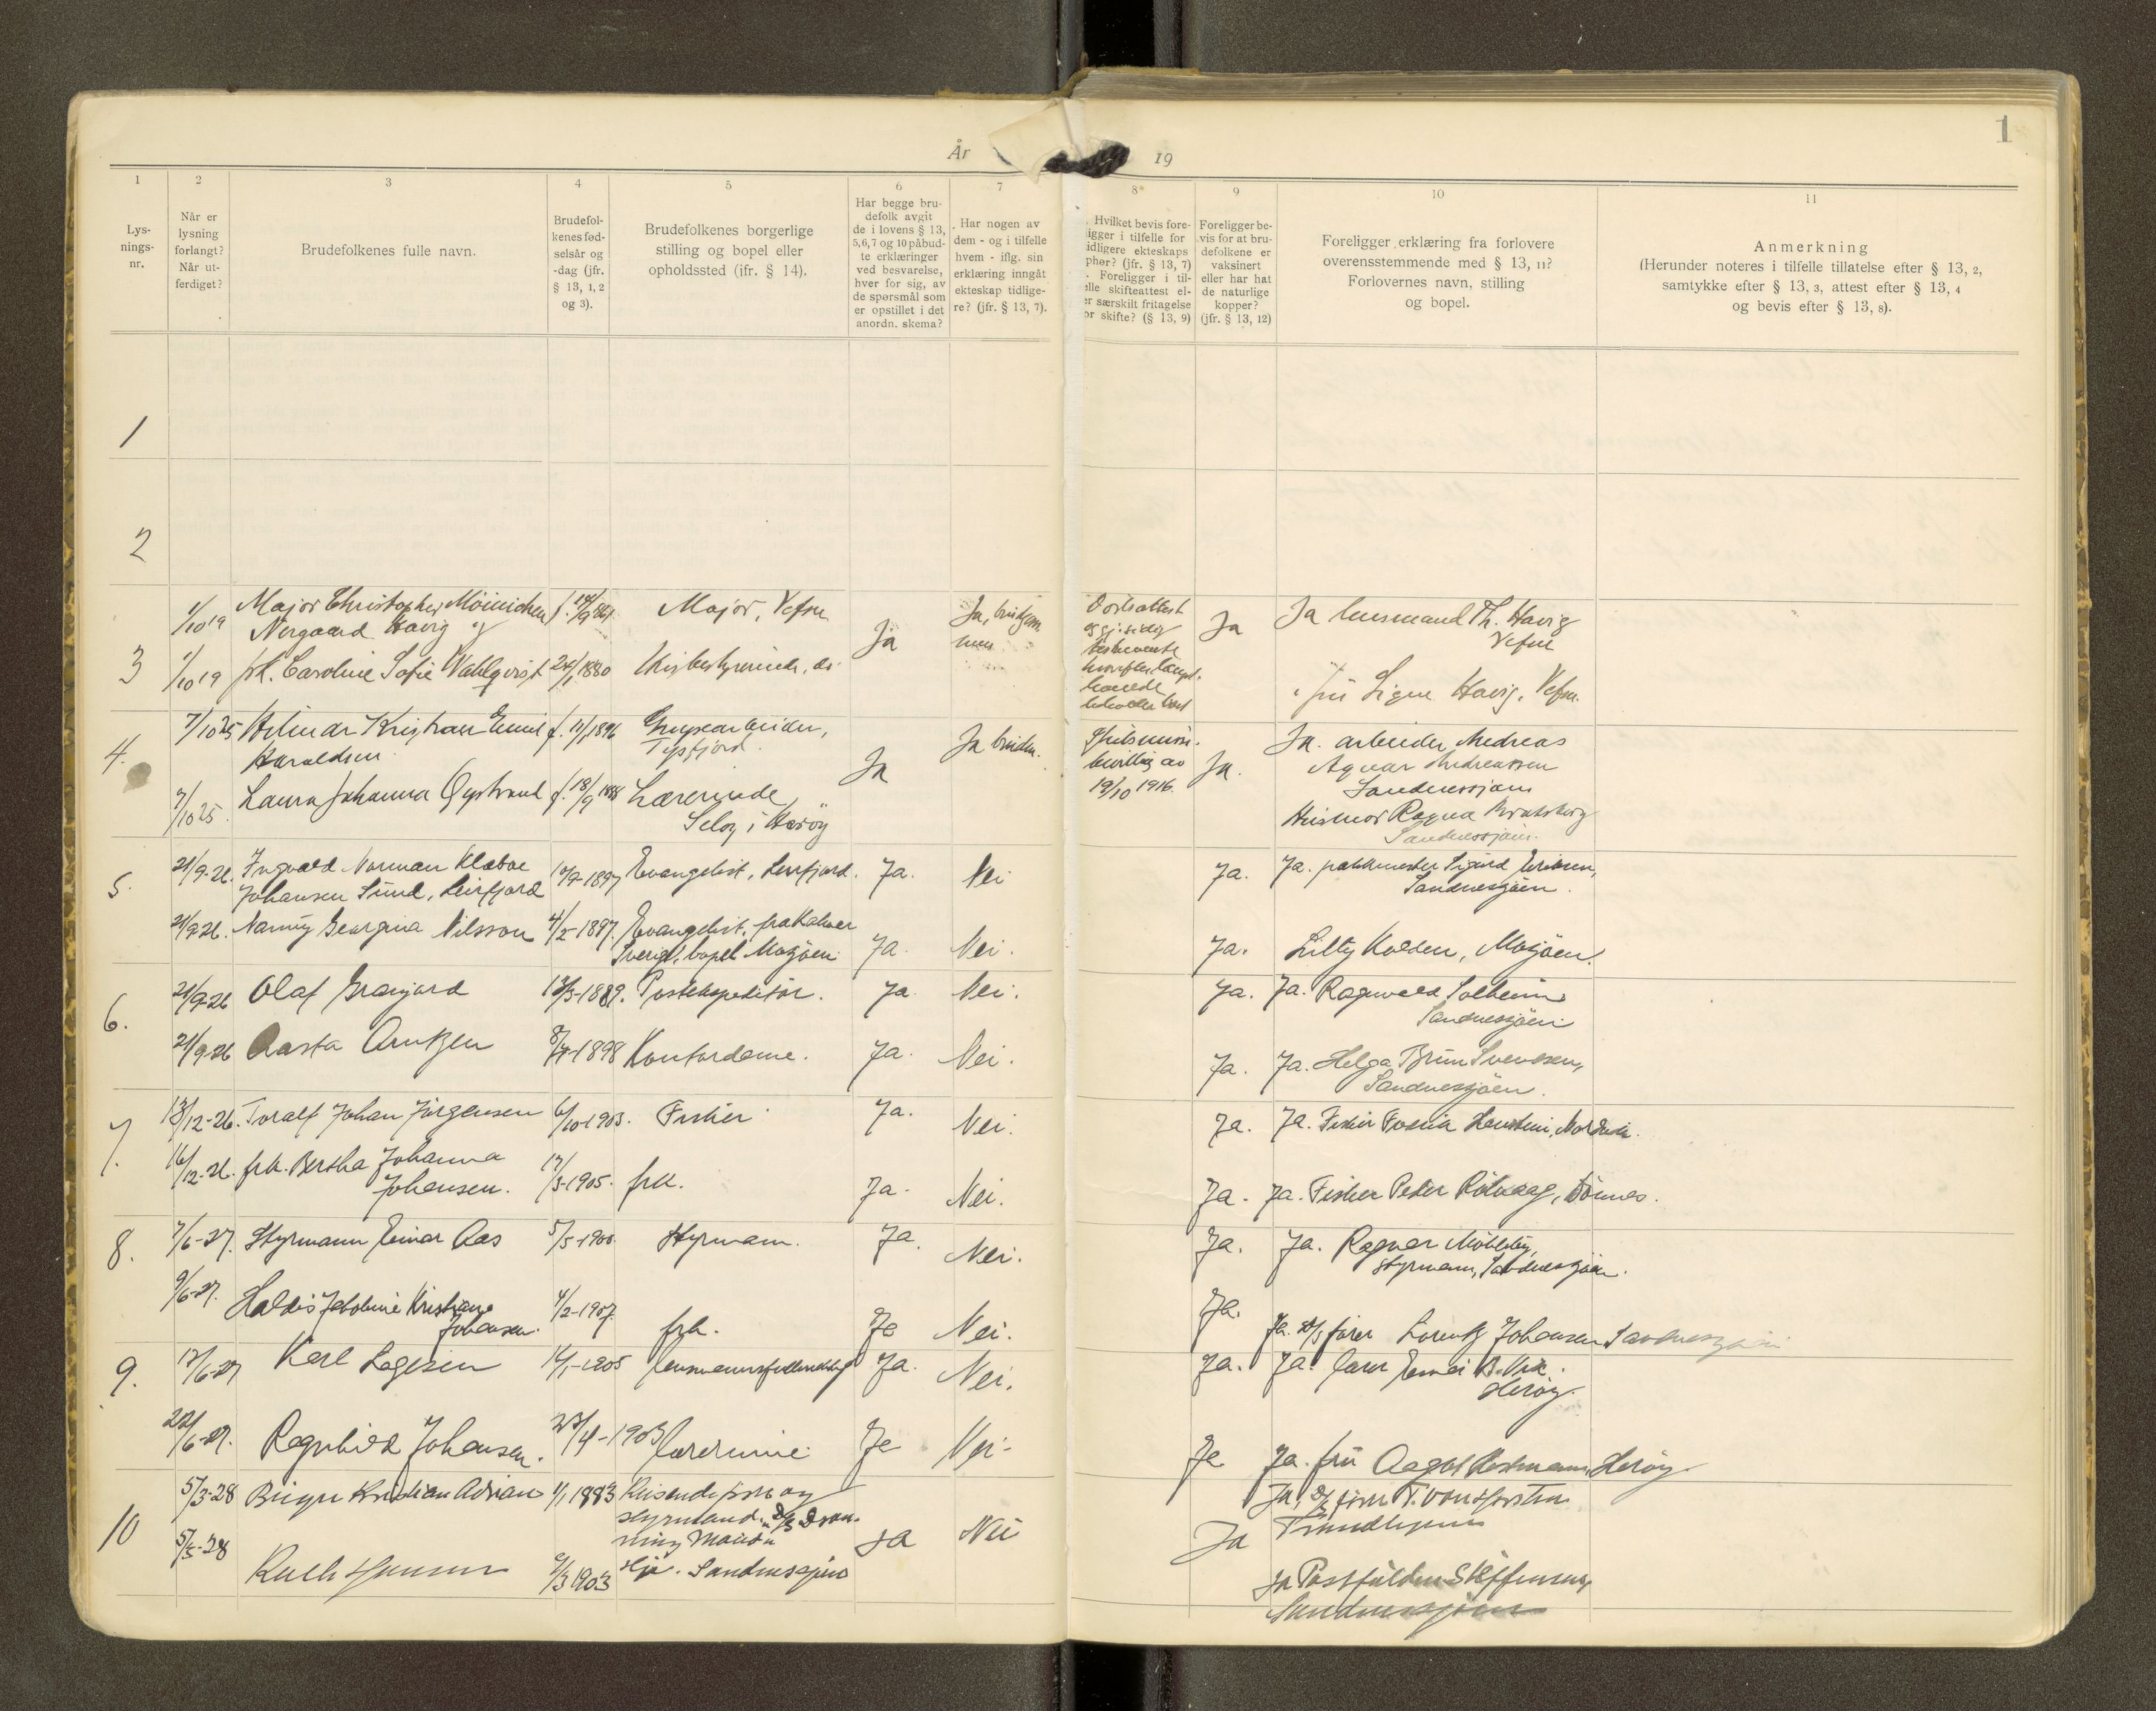 1
År
19
1
2
3
4
5
6
7
8
9
10
11
Lys-
nings-
nr.
Når er
lysning
forlangt?
Når ut-
ferdiget?
Brudefolkenes fulle navn.
Brudefol-
kenes fød-
selsår og
-dag (jfr.
§ 13, 1, 2
og 3).
Brudefolkenes borgerlige
stilling og bopel eller
opholdssted (jfr. § 14).
Har begge bru-
defolk avgit
de i lovens § 13,
5,6,7 og 10 påbud-
te erklæringer
ved besvarelse,
hver for sig, av
de spørsmål som
er opstillet i det
anordn. skema?
Har nogen av
dem - og i tilfelle
hvem - iflg. sin
erklæring inngått
ekteskap tidlige-
re? (jfr. § 13, 7).
Hvilket bevis fore-
igger i tilfelle for
idligere ekteskaps
phør? (jfr. § 13, 7)
. Foreligger i til-
elle skifteattest el-
er særskilt fritagelse
or skifte? (§ 13, 9)
Foreligger be-
vis for at bru-
defolkene er
vaksinert
eller har hat
de naturlige
kopper?
(jfr. § 13, 12)
Foreligger erklæring fra forlovere
overensstemmende med § 13, 11?
Forlovernes navn, stilling
og bopel.
Anmerkning
(Herunder noteres i tilfelle tillatelse efter § 13, 2,
samtykke efter § 13, 3, attest efter § 13, 4
og bevis efter § 13, 8).
1
2
3
1/10 19 Major Christopher
Nergaard Havig
Major, Vefsn
Ja
Ja
Ja lensmand Th. Havig
Vefsn
1/10 19 frk. Caroline Sofie Wahlqvist 1880
fru Signe Havig, Vefsn.
4.
7/10 25 Hilmar Kristian Emil f. 1896
Haraldsen
Tysfjord.
Ja
Ja bruden.
bevilling av
19/10 1916.
Ja.
Ja. arbeider Andreas
Andreassen
Sandnessjøen
7/10 25. Laura Johanna f. 18/9 1888 Lærerinde
i Herøy
Husmor Ragna
Sandnessjøen.
5.
21/9-26. Ingvald Norman Klæboe
Johansen Sund, Leirfjord
1897 Evangelist, Leirfjord. Ja. Nei
Ja. Ja. Sigurd Eriksen,
Sandnessjøen.
21/9-26. Nanny Georgina Nilsson 4/2-1897. Evangelist, fra
bopel Mosjøen. Ja. Nei.
Ja. Lilly Kolden, Mosjøen.
6.
21/9-26 Olaf Granjord 1889. Postekspeditør. Ja Nei.
Ja. Ja. Ragnvald Solheim
Sandnessjøen
21/9-26 Aasta Arntzen 1898 Kontordame. Ja. Nei.
Ja. Ja. Helga Brun Svendsen,
Sandnessjøen.
7.
13/12-26. Toralf Johan Jørgensen 6/10-1903. Fisker Ja. Nei.
Ja. Ja. Fisker
16/12-26. frk. Bertha Johanna
Johansen.
17/3-1905. frk. Ja. Nei.
Ja. Ja. Fisker Peter Rølvaag, Dønnes.
8.
7/6-27. Styrmann Einar Aas 5/5-1900. Styrmann. Ja. Nei.
Ja. Ja. Ragnar
Styrmann, Sandnessjøen.
9/6-27. Haldis Jakobine Kristiane
Johansen.
4/2-1907. frk. Ja Nei.
Ja. Ja. fører Lorentz Johansen Sandnessjøen
9.
17/6-27 Karl Legesen 1905 Ja. Nei.
Ja. Ja. lærer Einar
Herøy.
22/6-27. Ragnhild Johansen. 23/4-1903 lærerinne Ja Nei-
Ja Ja. fru Aagot Herøy
10
5/3-28 Birger Kristian Adrian 1/1 1883 Reisende
styrmand
Ja Nei
Ja
5/3-28
Ruth Hansen
1903
Hjv. Sandnessjøen
Ja
Steffensen,
Sandnessjøen